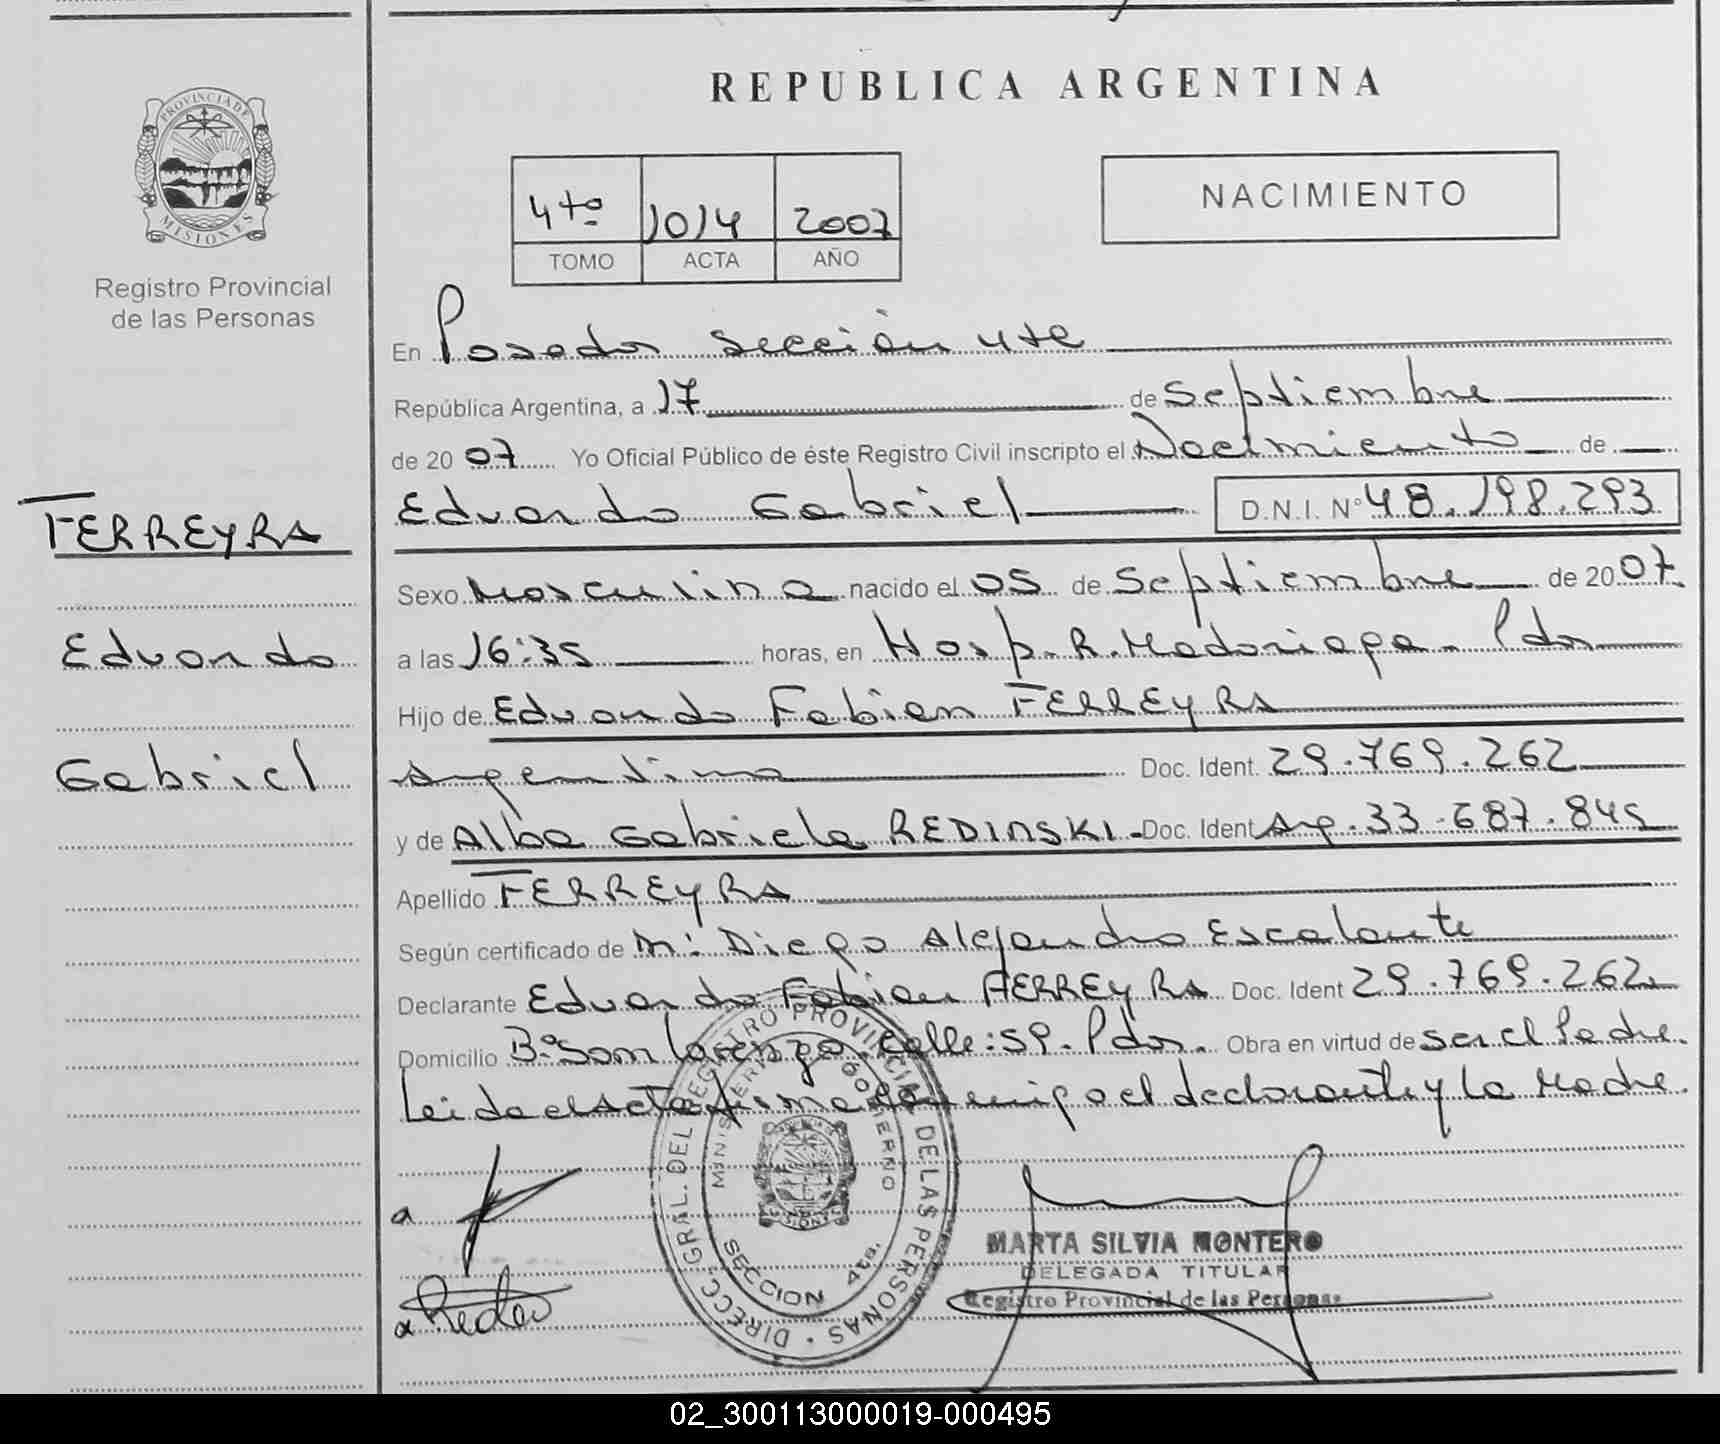 REPUBLICA ARGENTINA
PROVINCIA DE
MISIONES
Registro Provincial
de las Personas
4to 1014 2007
TOMO ACTA AÑO
NACIMIENTO
En Posadas sección 4ta
República Argentina, a 17 de Septiembre
de 2007 Yo Oficial Público de éste Registro Civil inscripto el Nacimiento de
Eduardo Gabriel D.N.I. Nº 48.198.293
FERREYRA
Eduardo
Gabriel
Sexo Masculino nacido el 05 de Septiembre de 2007
a las 16:35 horas, en Hosp. R. Madariaga - Pdas
Hijo de Eduardo Fabian FERREYRA
Argentino Doc. Ident. 29.769.262
y de Alba Gabriela REDINSKI - Doc. Ident Arg. 33.687.845
Apellido FERREYRA
Según certificado de M: Diego Alejandro Escalante
Declarante Eduardo Fabian FERREYRA Doc. Ident 29.769.262
Domicilio Bº San Lorenzo. Calle: 59. Pdas. Obra en virtud de ser el Padre.
Leida el acta firma conmigo el declarante y la Madre.
DIRECC. GRAL. DEL REGISTRO PROVINCIAL DE LAS PERSONAS
MINISTERIO GOBIERNO
MISIONES
SECCION 4ta.
MARTA SILVIA MONTERO
DELEGADA TITULAR
Registro Provincial de las Personas
02_300113000019-000495